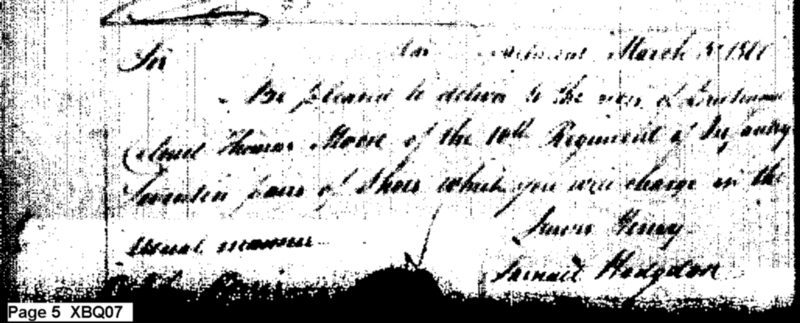 Sir
March 5 1800
Be pleased to deliver to the men of Lieutenant
Colonel Thomas Moore of the 10th Regiment of Infantry
Seventeen pairs of Shoes which you will charge in the
usual manner
Samuel Hodgdon
Page 5 XBQ07